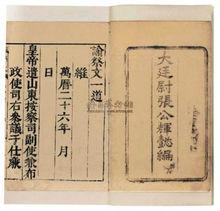 大廷尉張公輝懿編
諭祭文一道
維
萬曆二十六年 月
日
皇帝遣山東按察司副使兼布
政使司右參議于仕廉